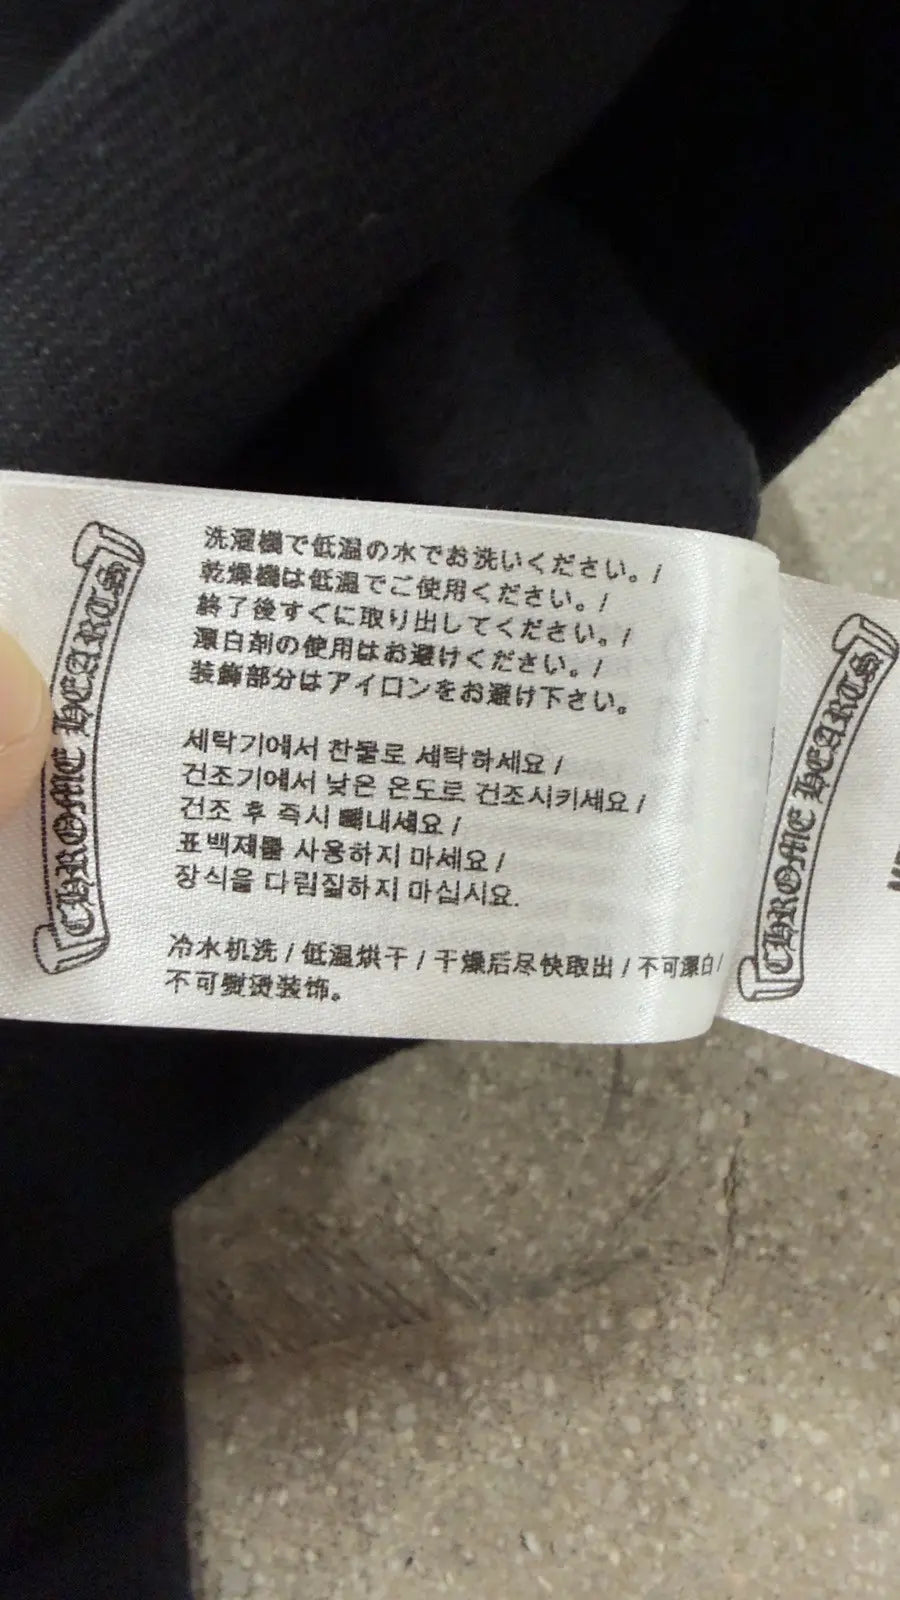 CHROME HEARTS
洗濯機で低温の水でお洗いください。/
乾燥機は低温でご使用ください。/
終了後すぐに取り出してください。/
漂白剤の使用はお避けください。/
装飾部分はアイロンをお避け下さい。
세탁기에서 찬물로 세탁하세요 /
건조기에서 낮은 온도로 건조시키세요 /
건조 후 즉시 빼내세요 /
표백제를 사용하지 마세요 /
장식을 다림질하지 마십시요.
冷水机洗 / 低温烘干 / 干燥后尽快取出 / 不可漂白/
不可熨烫装饰。
CHROME HEARTS